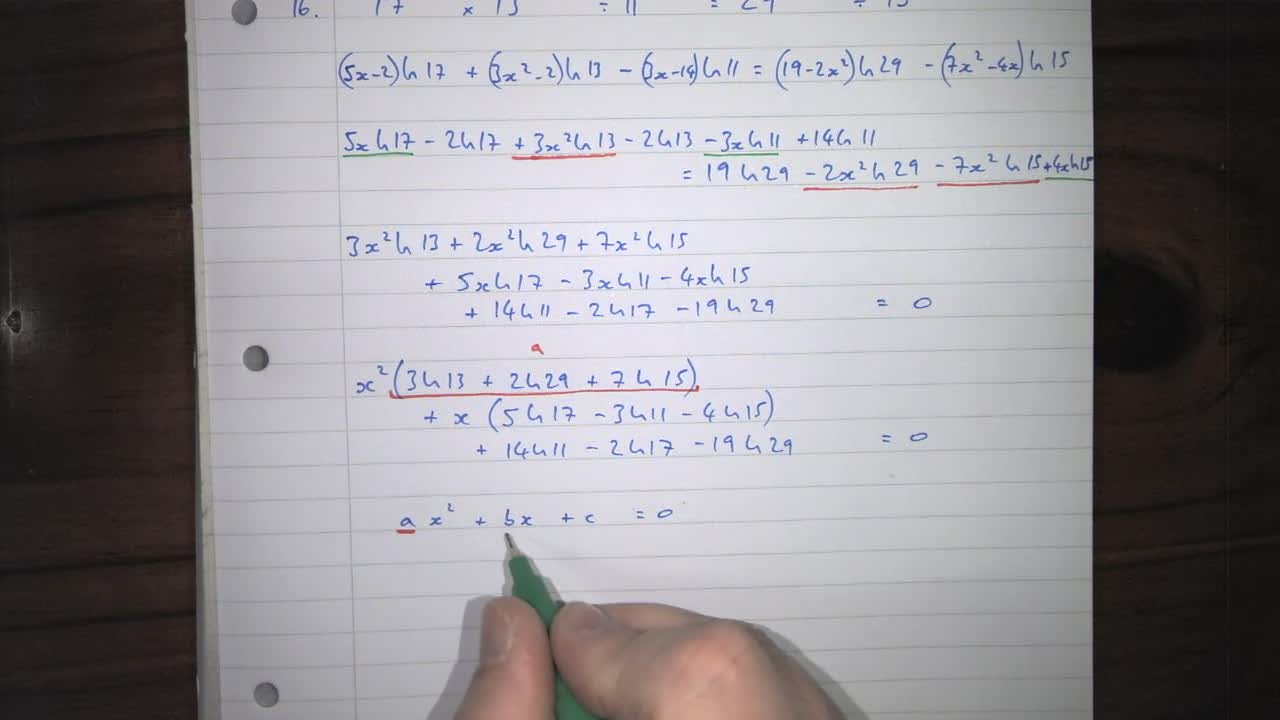 16. 17 × 13 ÷ 11 = 29 ÷ 15
(5x-2)ln 17 + (3x²-2)ln 13 - (3x-14)ln 11 = (19-2x²)ln 29 - (7x²-4x)ln 15
5x ln 17 - 2 ln 17 + 3x² ln 13 - 2 ln 13 - 3x ln 11 + 14 ln 11
= 19 ln 29 - 2x² ln 29 - 7x² ln 15 + 4x ln 15
3x² ln 13 + 2x² ln 29 + 7x² ln 15
+ 5x ln 17 - 3x ln 11 - 4x ln 15
+ 14 ln 11 - 2 ln 17 - 19 ln 29 = 0
a
x² (3 ln 13 + 2 ln 29 + 7 ln 15)
+ x (5 ln 17 - 3 ln 11 - 4 ln 15)
+ 14 ln 11 - 2 ln 17 - 19 ln 29 = 0
a x² + bx + c = 0